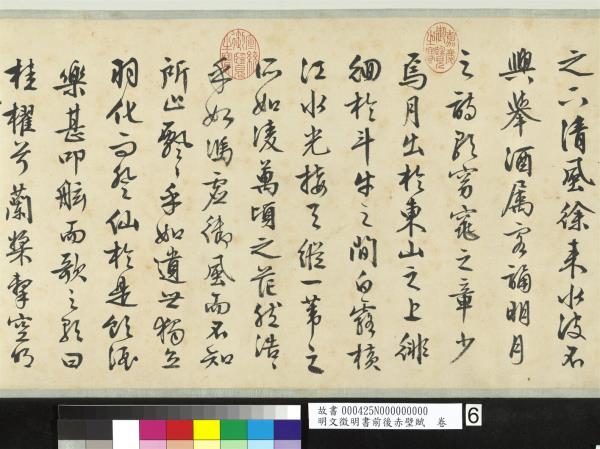 之下清風徐来水波不
興舉酒属客誦明月
之詩歌窈窕之章少
焉月出於東山之上徘
徊於斗牛之間白露橫
江水光接天縱一葦之
所如凌萬頃之茫然浩浩
乎如馮虛御風而不知
所止飄飄乎如遺世獨立
羽化而登仙於是飲酒
樂甚叩舷而歌之歌曰
桂櫂兮蘭槳擊空明
故書 000425N000000000
明文徵明書前後赤壁賦 卷
6